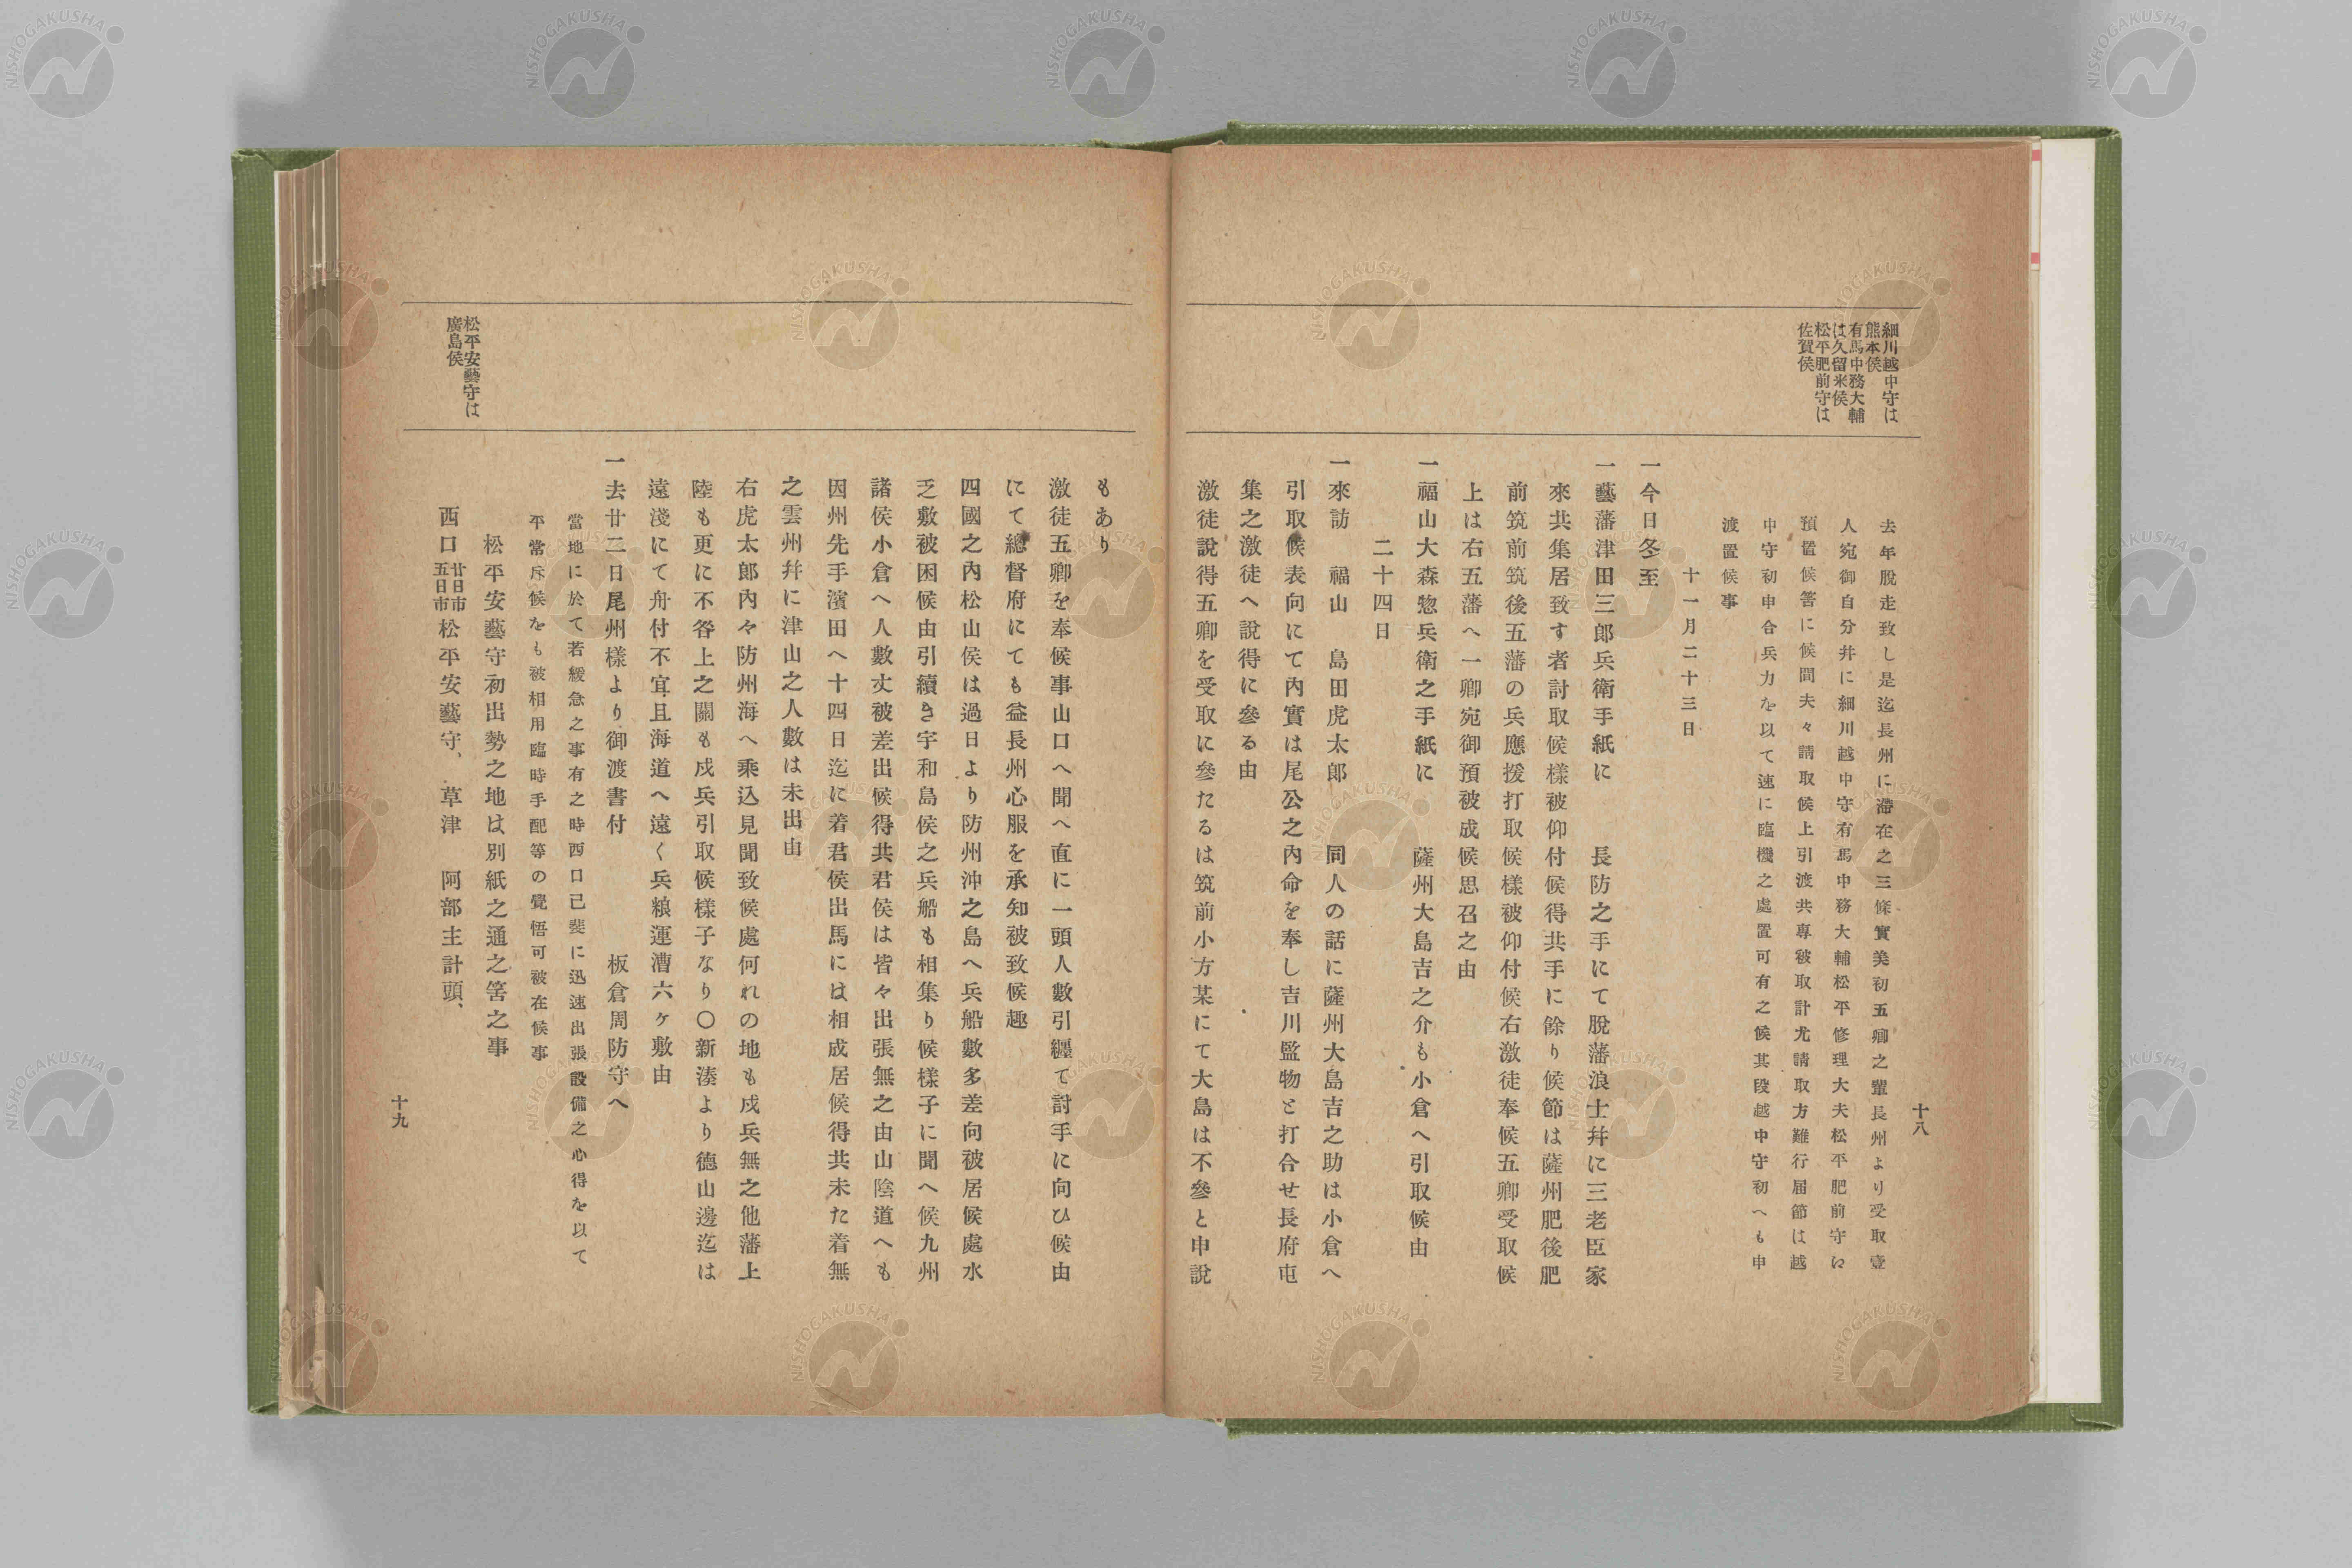 細川越中守は
熊本侯
有馬中務大輔
は久留米侯
松平肥前守は
佐賀侯
去年脫走致し是迄長州に滯在之三條實美初五卿之輩長州より受取壹
人宛御自分幷に細川越中守有馬中務大輔松平修理大夫松平肥前守に
預置候筈に候間夫々請取候上引渡共專被取計尤請取方難行届節は越
中守初申合兵力を以て速に臨機之處置可有之候其段越中守初へも申
渡置候事
十一月二十三日
一今日冬至
一藝藩津田三郎兵衛手紙に 長防之手にて脫藩浪士幷に三老臣家
來共集居致す者討取候樣被仰付候得共手に餘り候節は薩州肥後肥
前筑前筑後五藩の兵應援打取候樣被仰付候右激徒奉候五卿受取候
上は右五藩へ一卿宛御預被成候思召之由
一福山大森惣兵衛之手紙に 薩州大島吉之介も小倉へ引取候由
二十四日
一來訪 福山 島田虎太郎 同人の話に薩州大島吉之助は小倉へ
引取候表向にて內實は尾公之內命を奉し吉川監物と打合せ長府屯
集之激徒へ說得に參る由
激徒說得五卿を受取に參たるは筑前小方某にて大島は不參と申說
十八
もあり
激徒五卿を奉候事山口へ聞へ直に一頭人數引纒て討手に向ひ候由
にて總督府にても益長州心服を承知被致候趣
四國之內松山侯は過日より防州沖之島へ兵船數多差向被居候處水
乏敷被困候由引續き宇和島侯之兵船も相集り候樣子に聞へ候九州
諸侯小倉へ人數丈被差出候得共君侯は皆々出張無之由山陰道へも
因州先手濱田へ十四日迄に着君侯出馬には相成居候得共未た着無
之雲州幷に津山之人數は未出由
右虎太郎內々防州海へ乘込見聞致候處何れの地も戍兵無之他藩上
陸も更に不咎上之關も戍兵引取候樣子なり〇新湊より德山邊迄は
遠淺にて舟付不宜且海道へ遠く兵粮運漕六ケ敷由
一去廿二日尾州樣より御渡書付 板倉周防守へ
當地に於て若緩急之事有之時西口己斐に迅速出張設備之心得を以て
平常斥候をも被相用臨時手配等の覺悟可被在候事
松平安藝守初出勢之地は別紙之通之筈之事
西口 廿日市 五日市 松平安藝守、 草津 阿部主計頭、
松平安藝守は
廣島侯
十九
NISHOGAKUSHA